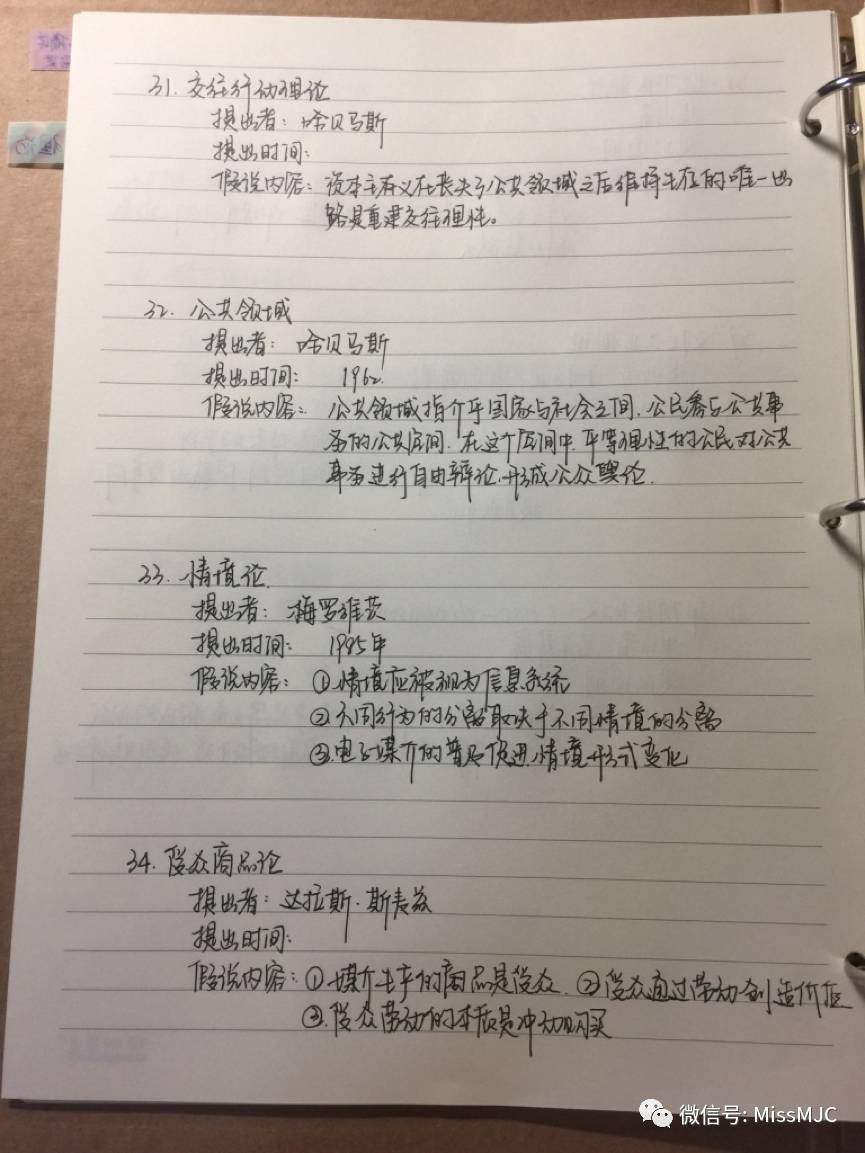 31. 交往行动理论
提出者：哈贝马斯
提出时间：
假说内容：资本主义在丧失了公共领域之后维持生存的唯一出
路是重建交往理性。
32. 公共领域
提出者：哈贝马斯
提出时间：1962.
假说内容：公共领域指介乎国家与社会之间，公民参与公共事
务的公共空间。在这个空间中，平等理性的公民对公共
事务进行自由辩论，形成公众舆论.
33. 情境论.
提出者：梅罗维茨
提出时间：1985年
假说内容：①情境应被视为信息系统
②不同行为的分离取决于不同情境的分离
③电子媒介的普及促进情境形式变化
34. 受众商品论
提出者：达拉斯·斯麦兹
提出时间：
假说内容：①媒介生产的商品是受众. ②受众通过劳动创造价值
③受众劳动的本质是冲动购买
微信号: MissMJC